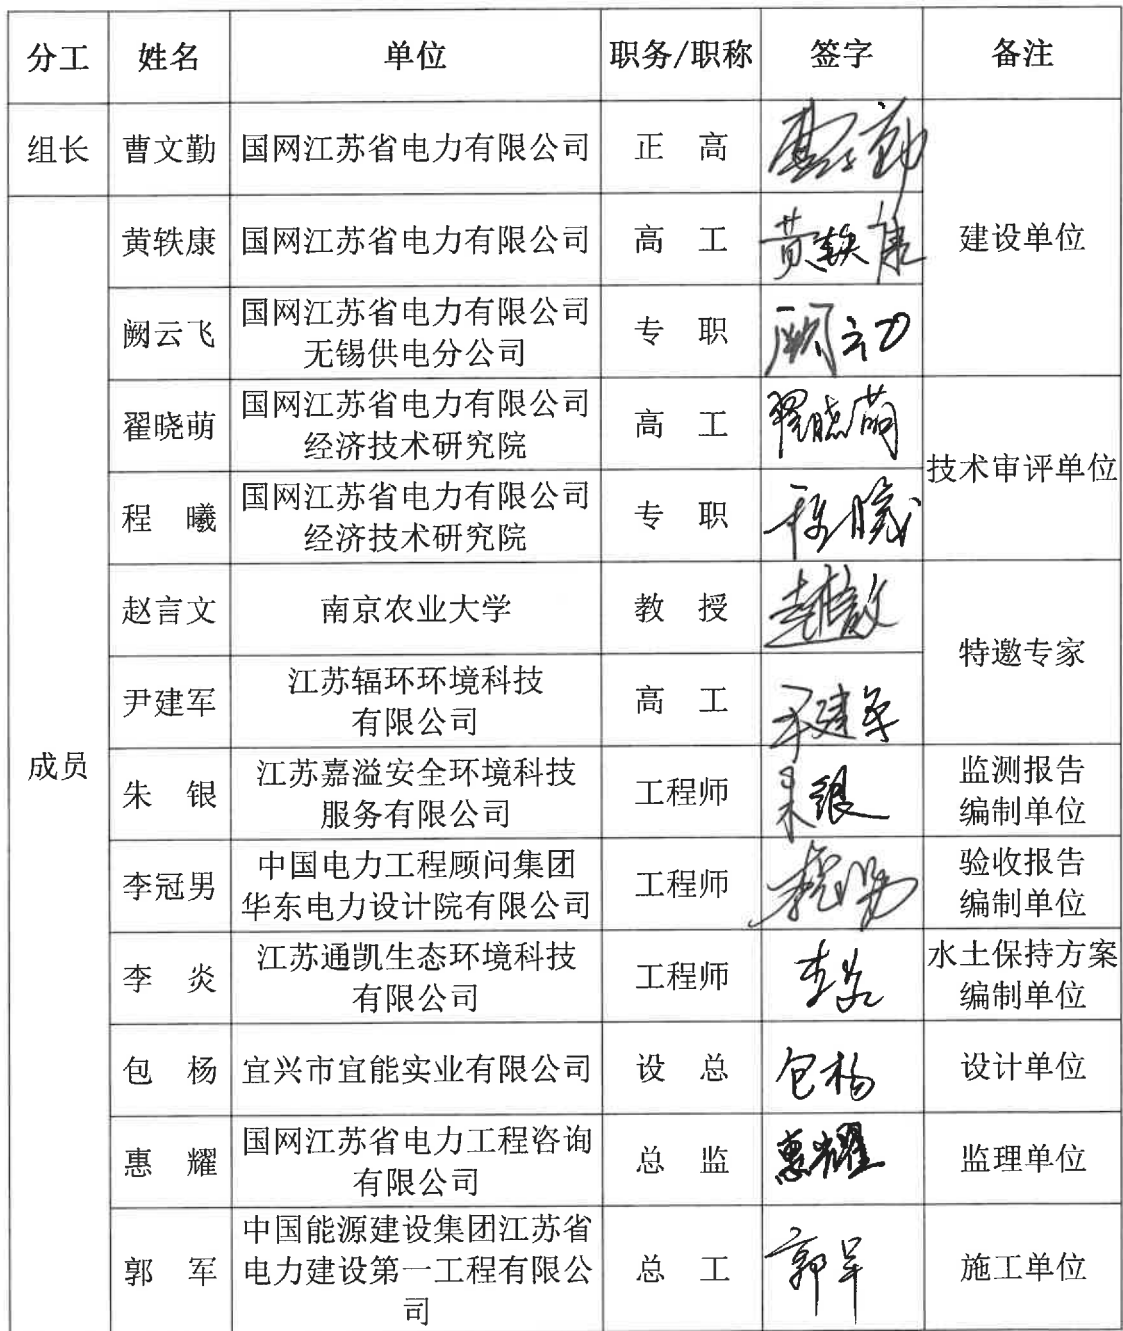 分工 姓名 单位 职务/职称 签字 备注
组长 曹文勤 国网江苏省电力有限公司 正 高 曹文勤
黄轶康 国网江苏省电力有限公司 高 工 黄轶康 建设单位
阙云飞 国网江苏省电力有限公司
无锡供电分公司 专 职 阙云飞
翟晓萌 国网江苏省电力有限公司
经济技术研究院 高 工 翟晓萌
技术审评单位
程 曦 国网江苏省电力有限公司
经济技术研究院 专 职 程曦
赵言文 南京农业大学 教 授 赵言文
特邀专家
尹建军 江苏辐环环境科技
有限公司 高 工 尹建军
成员
朱 银 江苏嘉溢安全环境科技
服务有限公司 工程师 朱银 监测报告
编制单位
李冠男 中国电力工程顾问集团
华东电力设计院有限公司 工程师 验收报告
编制单位
李 炎 江苏通凯生态环境科技
有限公司 工程师 李炎 水土保持方案
编制单位
包 杨 宜兴市宜能实业有限公司 设 总 包杨 设计单位
惠 耀 国网江苏省电力工程咨询
有限公司 总 监 惠耀 监理单位
郭 军 中国能源建设集团江苏省
电力建设第一工程有限公
司 总 工 郭军 施工单位